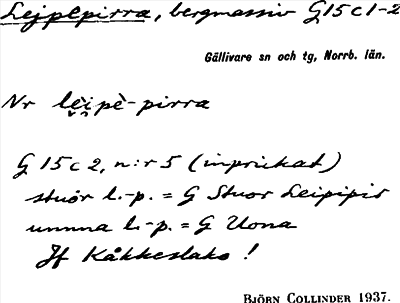 Lejpepirra, bergmassiv G15c1-2
Gällivare sn och tg, Norrb. län.
Nr lèi̯pè-pirra
G 15c2, n:r 5 (inprickat)
stuor l.-p. = G Stuor Leipipir
unnna l.-p. = G Uona
Jf Kåkkeslako !
BJÖRN COLLINDER 1937.